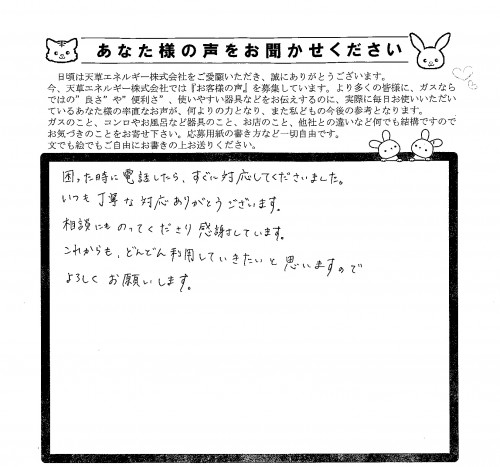 あなた様の声をお聞かせください
日頃は天草エネルギー株式会社をご愛顧いただき、誠にありがとうございます。
今、天草エネルギー株式会社では『お客様の声』を募集しています。より多くの皆様に、ガスなら
ではの”良さ”や”便利さ”、使いやすい器具などをお伝えするのに、実際に毎日お使いいただい
ているあなた様の率直なお声が、何よりの力となり、また私どもの今後の参考となります。
ガスのこと、コンロやお風呂など器具のこと、お店のこと、他社との違いなど何でも結構ですので
お気づきのことをお寄せ下さい。応募用紙の書き方など一切自由です。
文でも絵でもご自由にお書きの上お送りください。
困った時に電話したら、すぐに対応してくださいました。
いつも丁寧な対応ありがとうございます。
相談にものってくださり感謝しています。
これからも、どんどん利用していきたいと思いますので
よろしくお願いします。